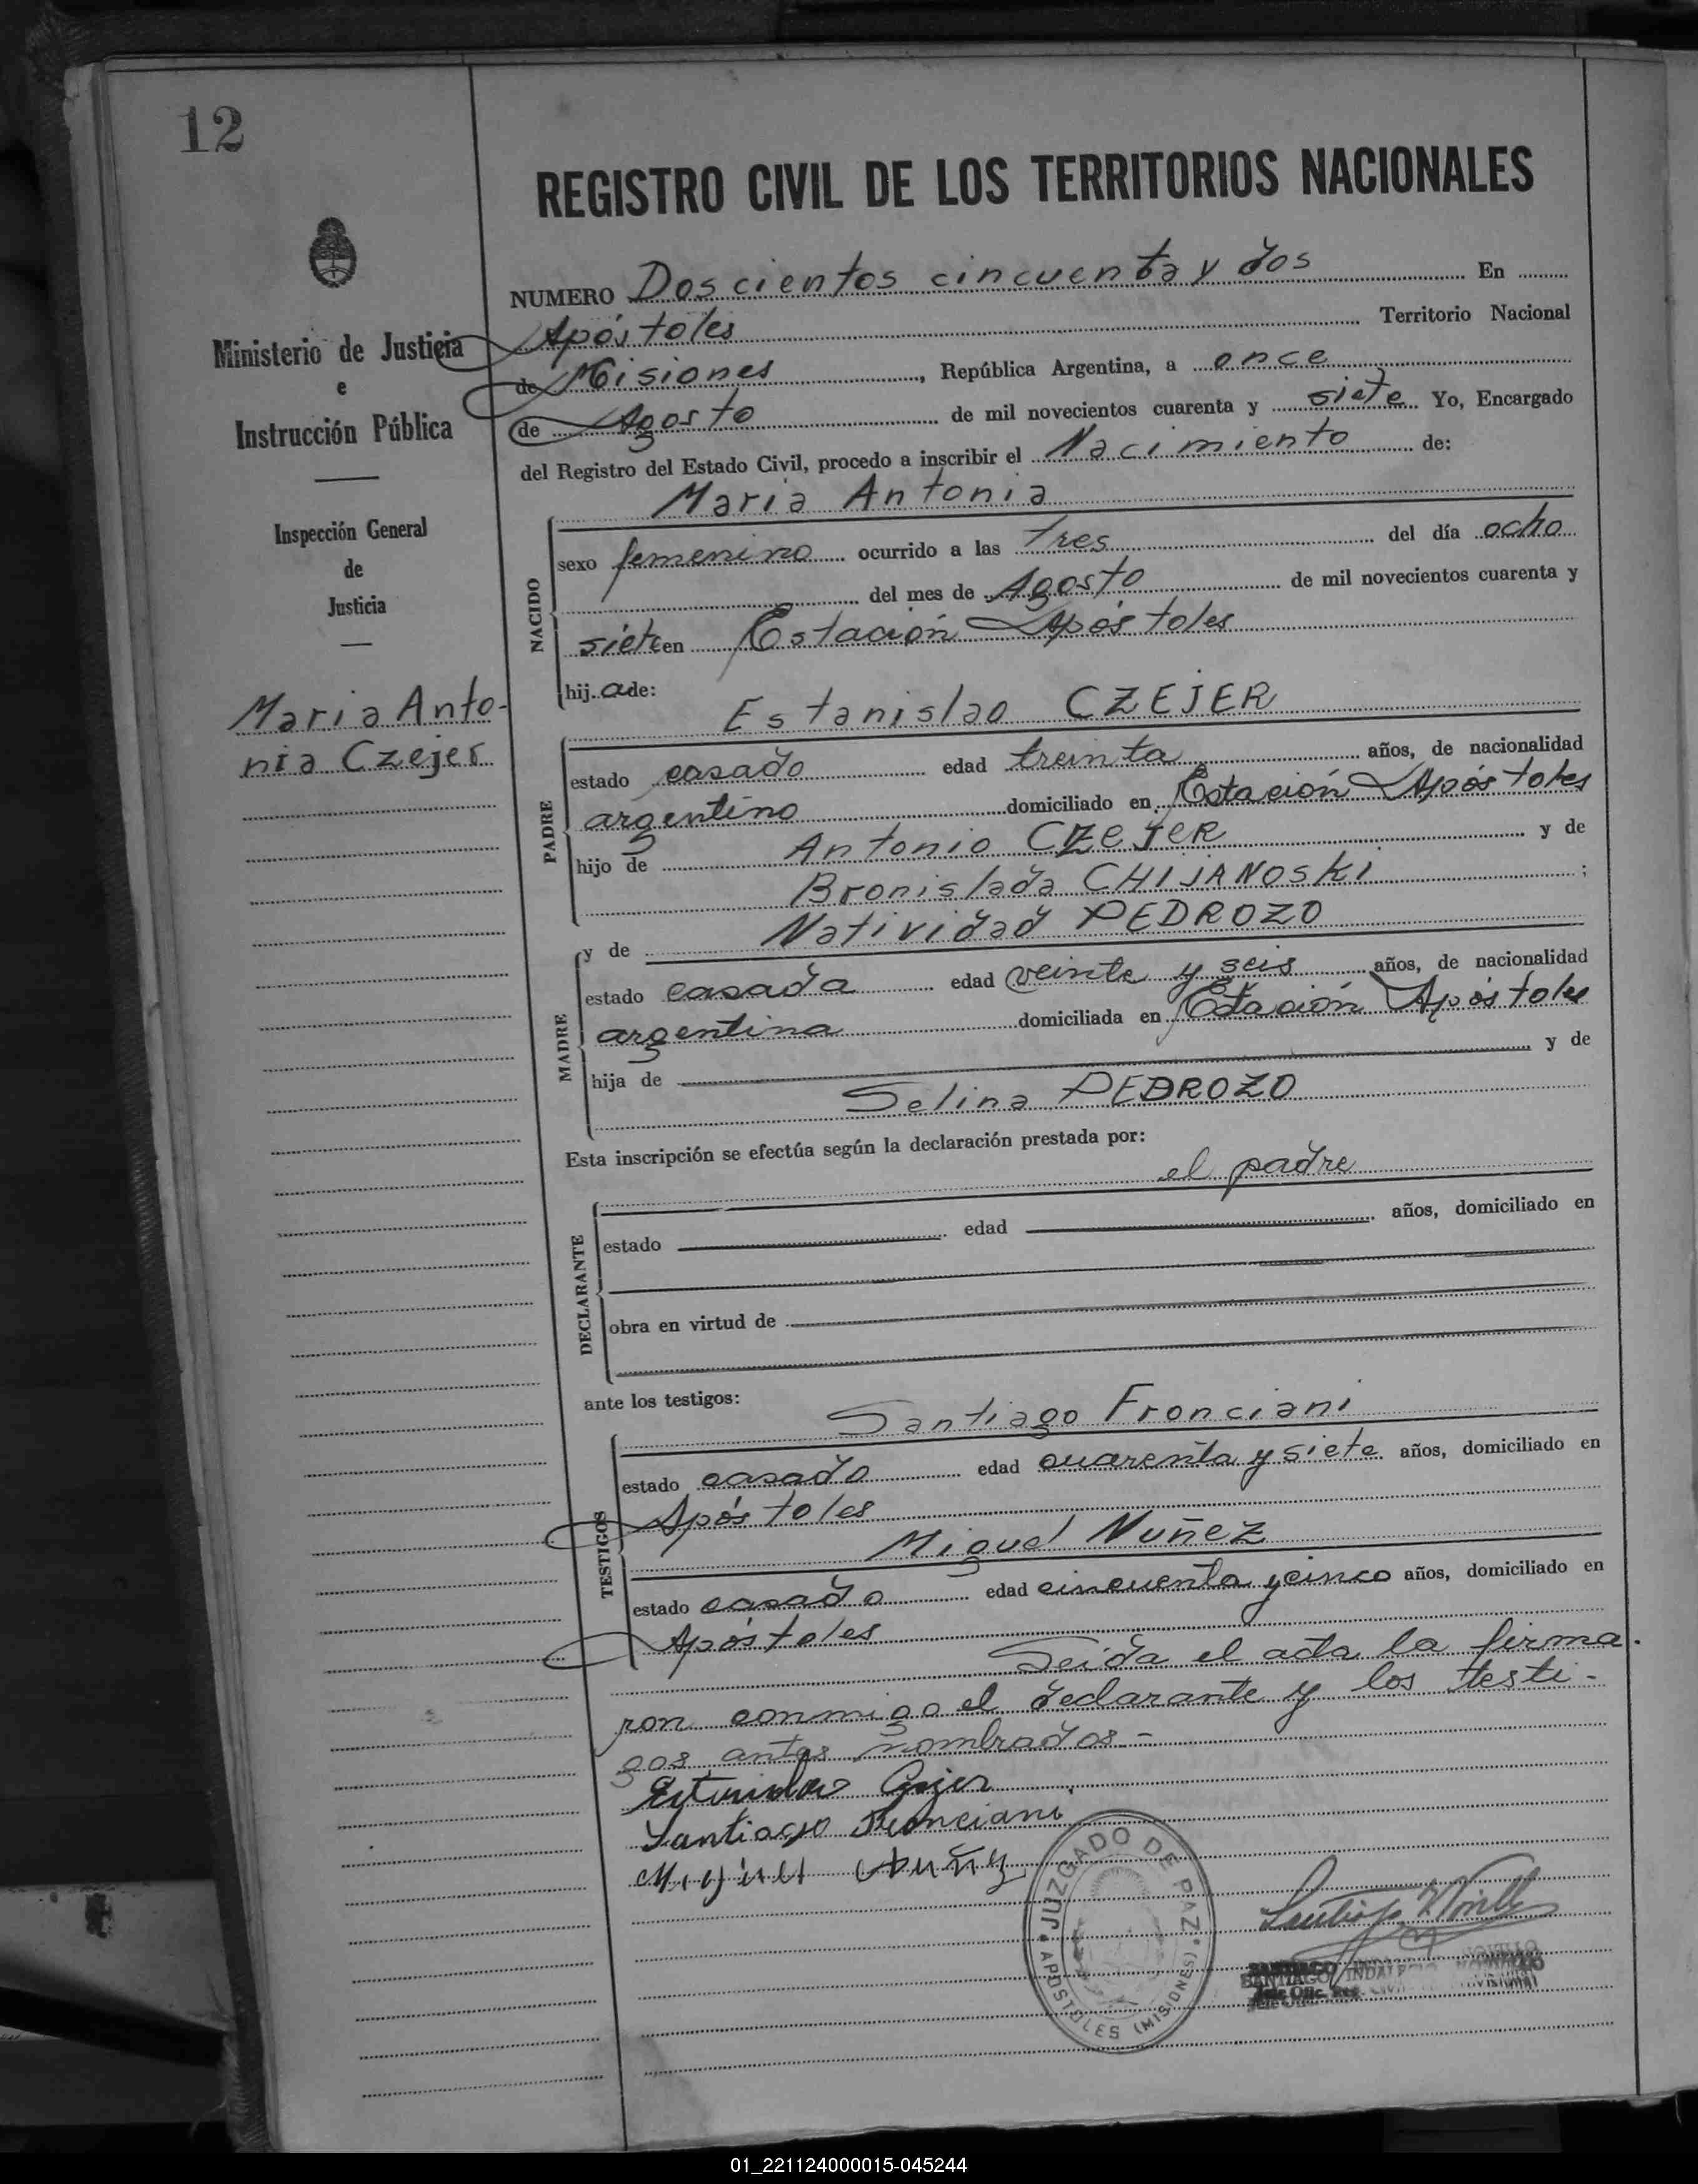 12
REGISTRO CIVIL DE LOS TERRITORIOS NACIONALES
Ministerio de Justicia
e
Instrucción Pública
Inspección General
de
Justicia
Maria Anto-
nia Czejer
NUMERO Doscientos cincuenta y dos En
Apóstoles Territorio Nacional
de Misiones, República Argentina, a once
de Agosto de mil novecientos cuarenta y siete Yo, Encargado
del Registro del Estado Civil, procedo a inscribir el Nacimiento de:
Maria Antonia
NACIDO
sexo femenino ocurrido a las tres del día ocho
del mes de Agosto de mil novecientos cuarenta y
siete en Estación Apóstoles
hij a de:
Estanislao CZEJER
PADRE
estado casado edad treinta años, de nacionalidad
argentino domiciliado en Estación Apóstoles
hijo de Antonio CZEJER y de
Bronislada CHIJANOSKI ;
y de Natividad PEDROZO
MADRE
estado casada edad veinte y seis años, de nacionalidad
argentina domiciliada en Estación Apóstoles
hija de y de
Selina PEDROZO
Esta inscripción se efectúa según la declaración prestada por:
el padre
DECLARANTE
estado edad años, domiciliado en
obra en virtud de
ante los testigos:
Santiago Fronciani
TESTIGOS
estado casado edad cuarenta y siete años, domiciliado en
Apóstoles
Miguel Nuñez
estado casado edad cincuenta y cinco años, domiciliado en
Apóstoles
Leida el acta la firma.
ron conmigo el declarante y los testi-
gos antes nombrados-
Estanislao Czejer
Santiago Fronciani
Miguel Nuñez
JUZGADO DE PAZ
APOSTOLES (MISIONES)
SANTIAGO INDALECIO
01_221124000015-045244